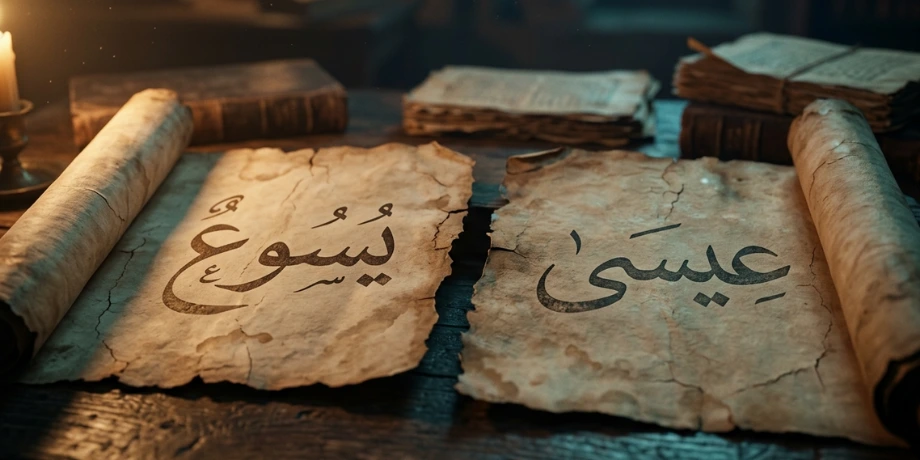 عِيسَىٰ
يُسُوعٌ